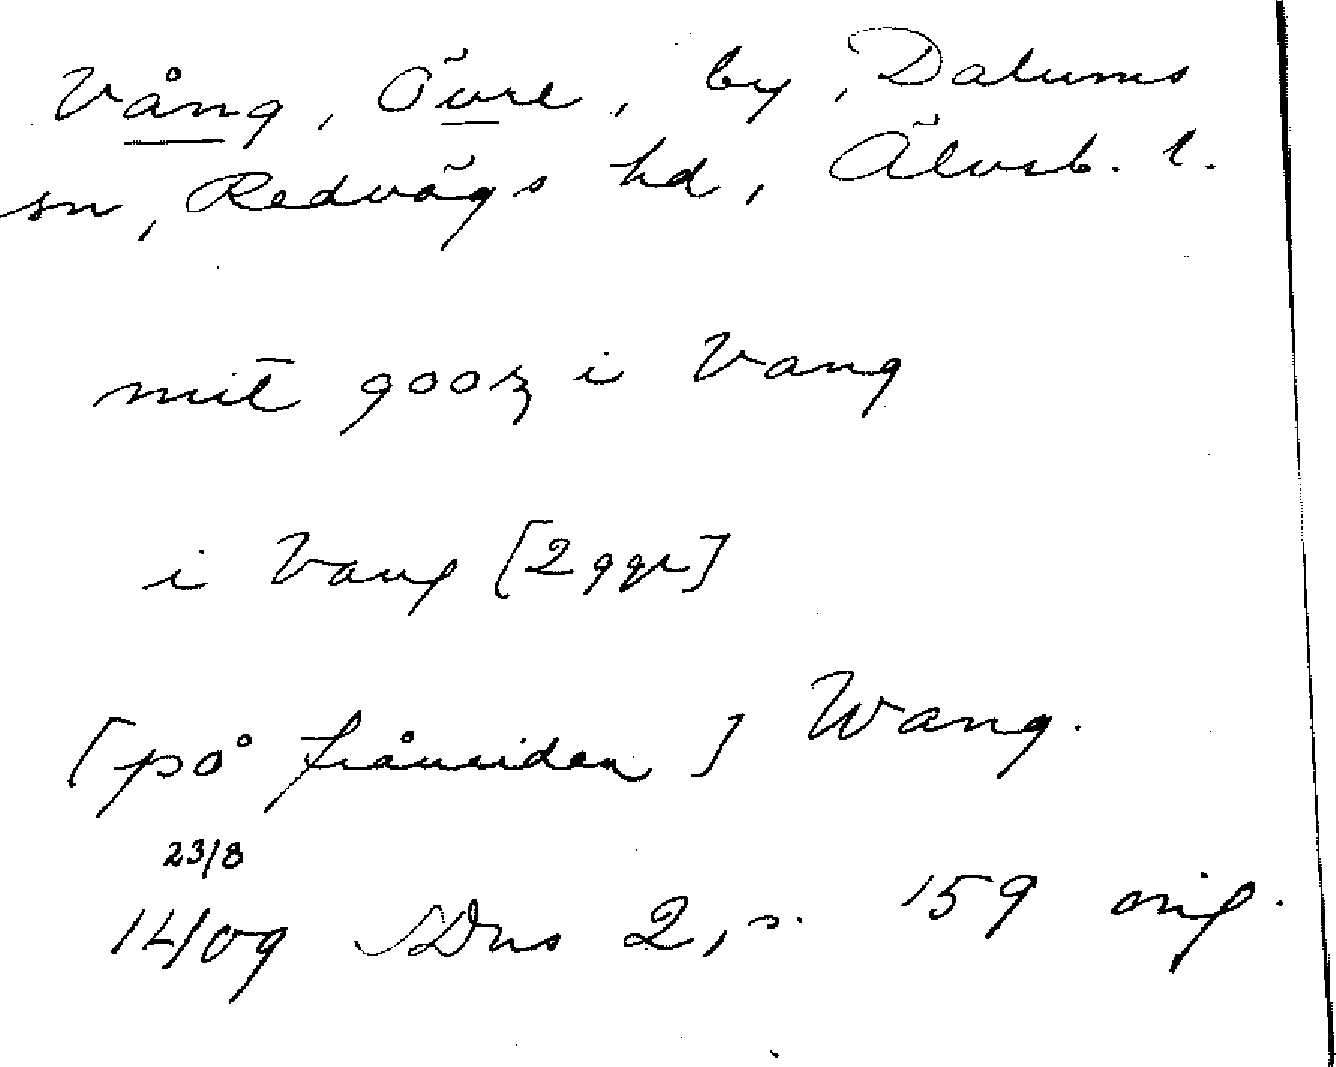 Vång, Övre, by, Dalums
sn, Redvägs hd, Älvsb. l.
mit̄ gooz i Vang
i Vang [2 ggr]
[på frånsidan] Wang.
23/8
1409 SDns 2, s. 159 orig.